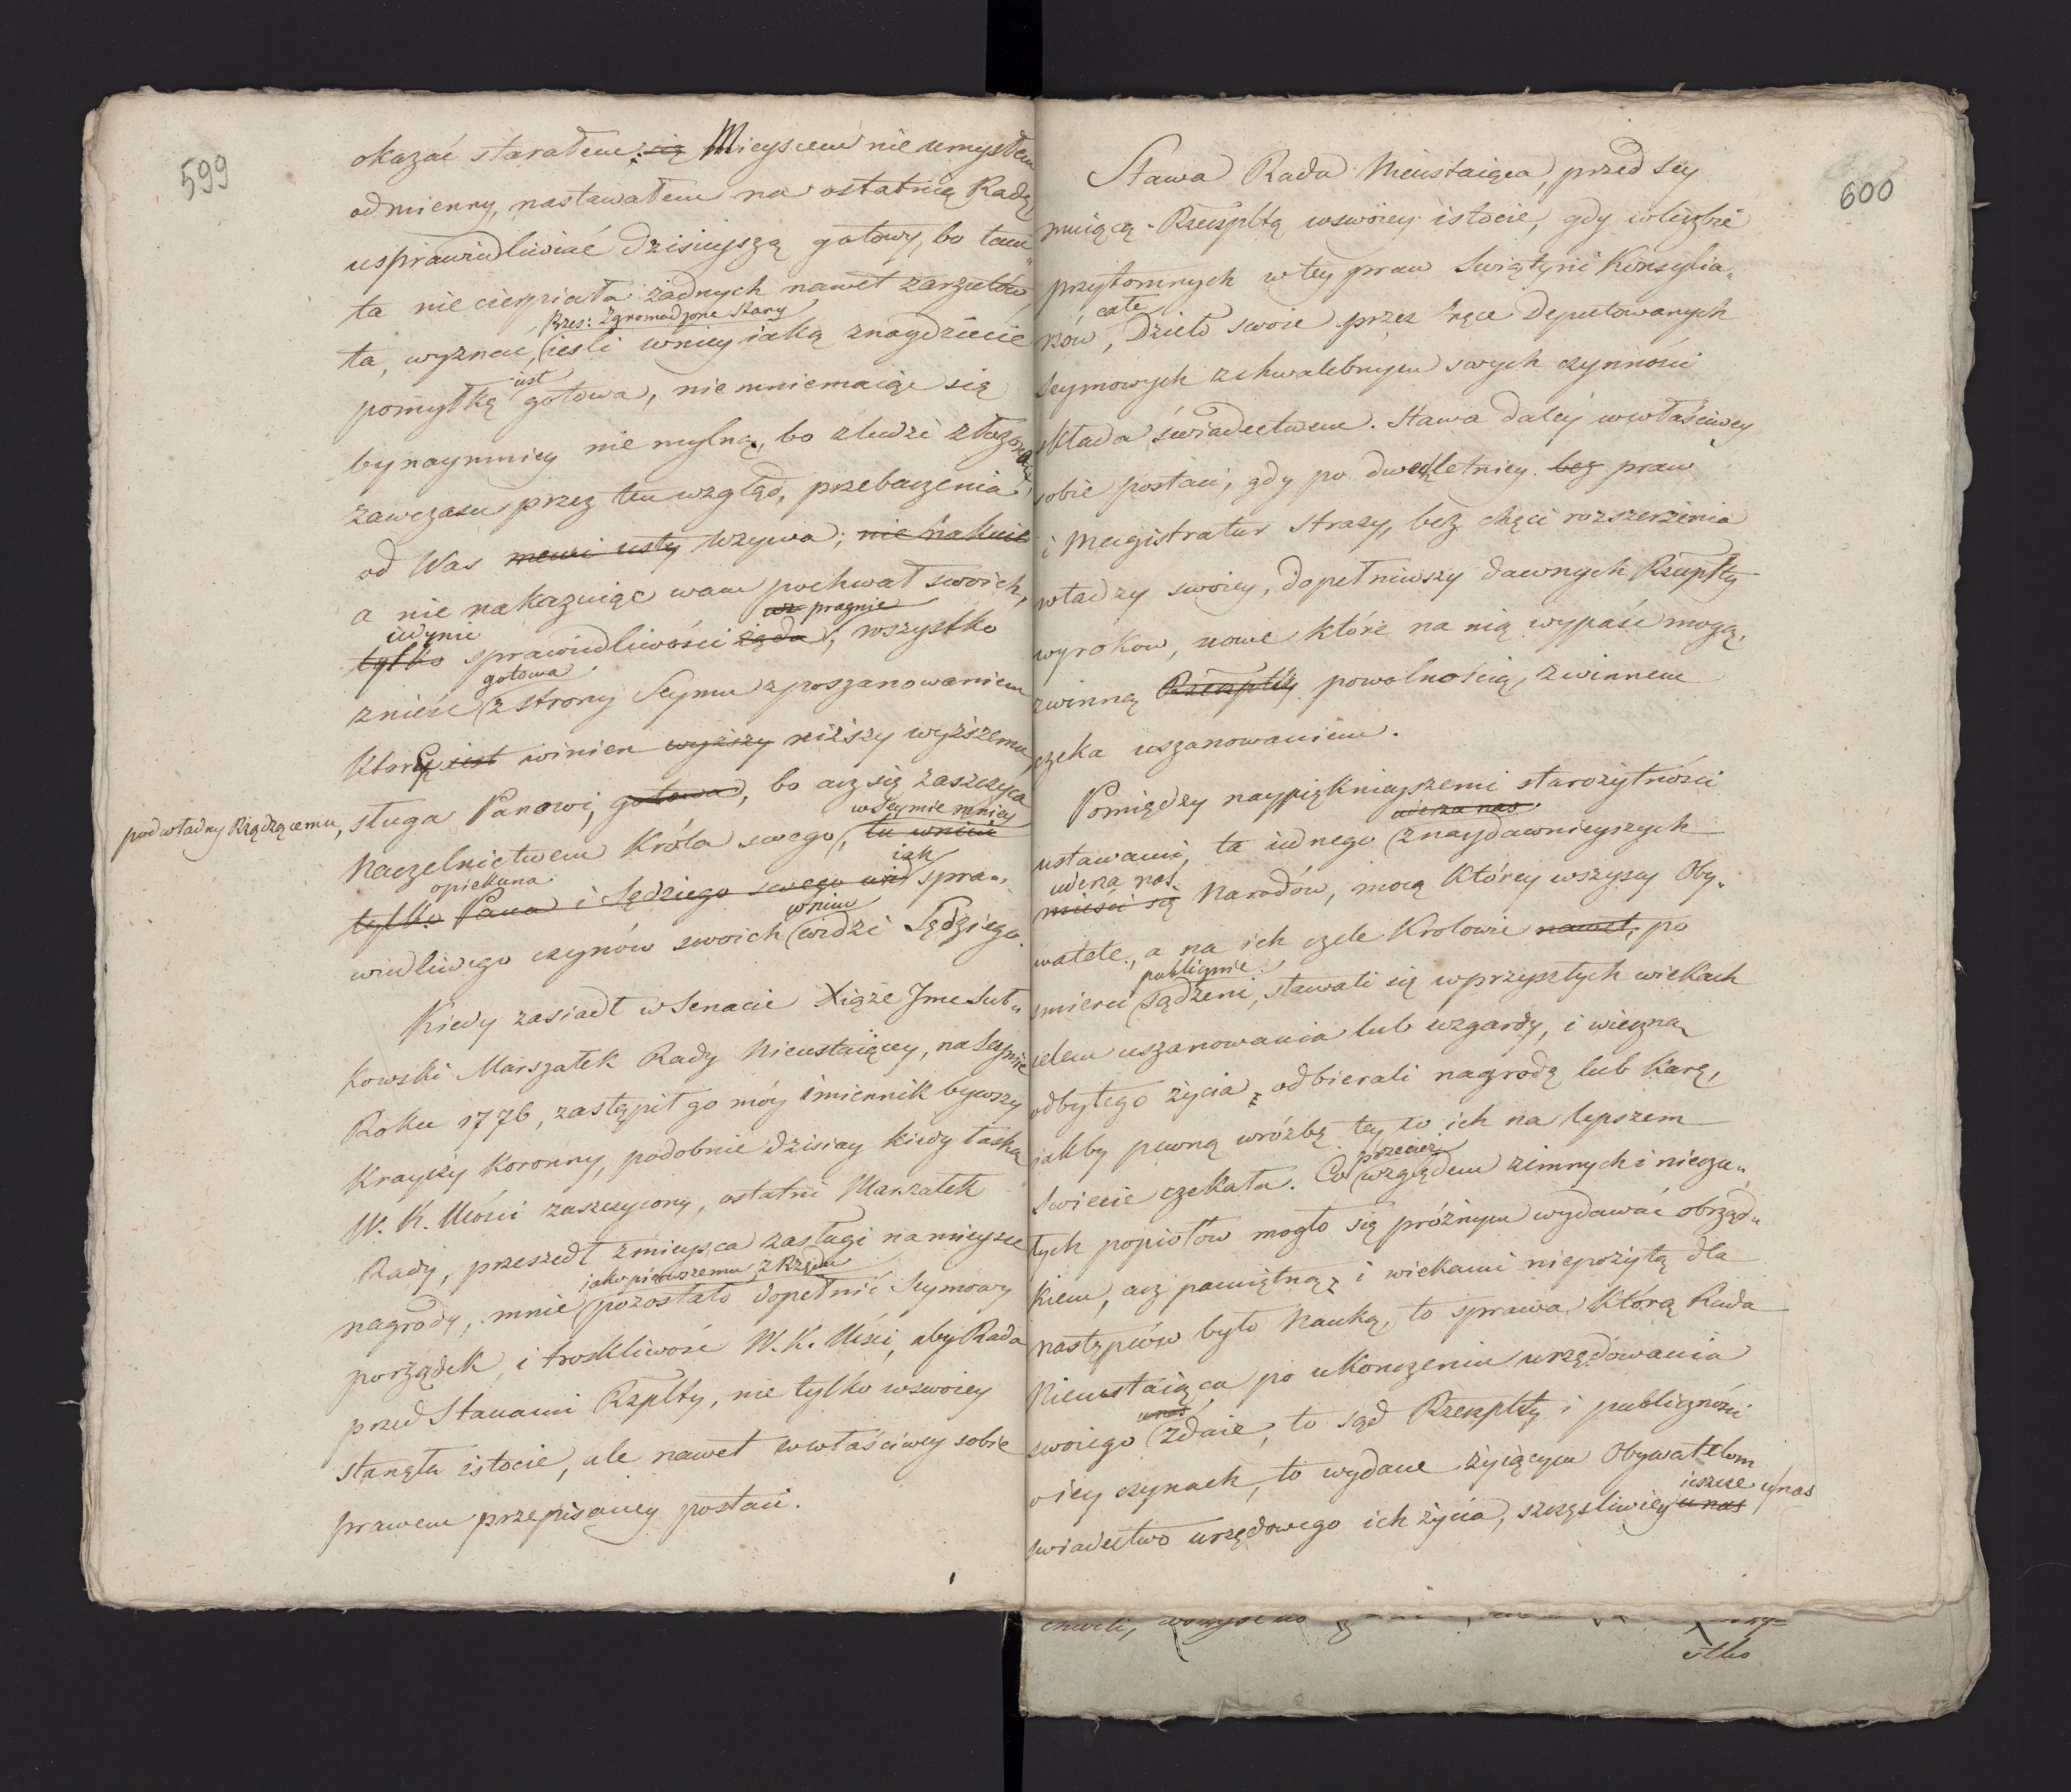 599
okazać starałem. się Mieyscem nie umysłem
odmienny, nastawałem na ostatnią Radę
usprawiedliwiać dzisieyszą gotowy, bo tam„
ta nie cierpiała żadnych nawet zarzutów
Przes: Zgromadzone Stany
ta, wyznać, (iesli wniey iaką znaydziecie
iest
pomyłkę gotowa, nie mniemaiąc się
bynaymniey nie mylną, bo zludzi złożoną,
zawczasu przez ten wzgląd, przebaczenia
od Was memi usty wzywa; nie nakaie
a nie nakazuiąc wam pochwał swoich,
iedynie pragnie
tylko sprawiedliwości żąda, wszystko
gotowa
znieść (z strony Seymu z poszanowaniem
które iest winien wyższy niższy wyższemu,
podwładny Rządzącemu, sługa Panowi, gotowa, bo acz się zaszczyca
w Seymie mniey
Naczelnictwem Króla swego, tu wniem
opiekuna iak
tylko Pana i Sędziego swego wid spra„
wnim
wiedliwego czynów swoich (widzi Sędziego.
Kiedy zasiadł w Senacie Xiąże Jmc Suł„
kowski Marszałek Rady Nieustaiącey, na Seymie
Roku 1776, zastąpił go móy imiennik bywszy
Krayczy Koronny, podobnie dzisiay kiedy łaską
W. K. Mości zaszczycony, ostatni Marszałek
Rady, przeszedł z mieysca zasługi na mieysce
iako pierwszemu z Rzędu
nagrody, mnie (pozostało dopełnić Seymowy
porządek, i troskliwość W. K. Mści, aby Rada
przed Stanami Rzplty, nie tylko wswoiey
stanęła istocie, ale nawet wwłaściwey sobie
prawem przepisaney postaci.
600
Stawa Rada Nieustaiąca, przed Sey
muiącą Rzeczpltą wswoiey istocie, gdy wliczbie
przytomnych wtey praw Swiątyni Konsylia„
całe
rzów, Dzieło swoie przez ręce Deputowanych
Seymowych z chwalebnym swych czynności
składa świadectwem. Stawa daley wwłaściwey
sobie postaci, gdy po dwuletniey. bez praw
i Magistratur straży, bez chęci rozszerzenia
władzy swoiey, dopełniwszy dawnych Rzeczplty
wyroków, nowe które na nią wypaść mogą,
zwinną Rzeczplty powolnością, zwinnem
czeka uszanowaniem.
Pomiędzy naypięknieyszemi starożytności
uderza nas
ustawami, ta iednego (znaydawnieyszych
uderza nas
mieści się Narodów, mocą którey wszyscy Oby„
watele, a na ich czele Królowie nawet, po
publicznie
śmierci (sądzeni, stawali się wprzyszłych wiekach
celem uszanowania lub wzgardy, i wieczną
odbytego życia, odbierali nagrodę lub karę,
iakby pewną wróżbę tey co ich na lepszem
przecież
Swiecie czekała. Co (względem zimnych i nieczu„
łych popiołów mogło się próżnym wydawać obrząd„
kiem, acz pamiętną, i wiekami niepożytą dla
następców było Nauką, to sprawa, którą Rada
Nieustaiąca po ukonczeniu urzędowania
unas
swoiego (zdaie, to sąd Rzeczplty i publiczności
o iey czynach, to wydane żyiącym Obywatelom
ieszcze u nas
świadectwo urzędowego ich życia, szczęśliwiey u nas